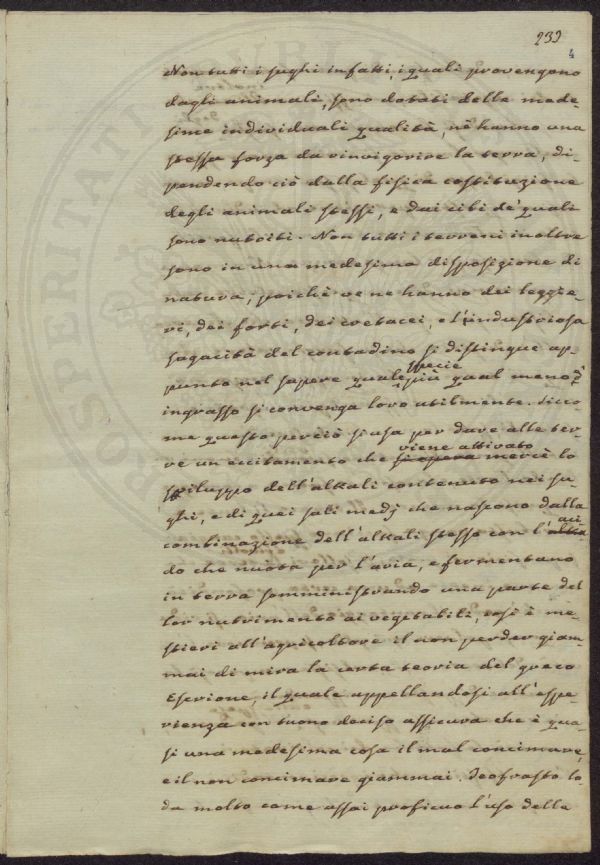 239
4
Non tutti i sughi infatti, i quali provengono
dagli animali, sono dotati delle mede-
sime individuali qualità, nè hanno una
stessa forza da rinvigorire la terra, di-
pendendo ciò dalla fisica costituzione
degli animali stessi, e dai cibi de' quali
sono nutriti. Non tutti i terreni inoltre
sono in una medesima disposizione di
natura; poichè ve ne hanno dei leggie-
ri, dei forti, dei cretacei, e l'industriosa
sagacità del contadino si distingue ap-
specie
punto nel sapere quale più qual meno
ingrasso si convenga loro utilmente. Sicco-
me questo perciò si usa per dare alle ter-
viene attivato
re un eccitamento che si opera mercè lo
sviluppo dell'alkali contenuto nei su-
ghi, e di quei sali medj che nascono dalla
aci-
combinazione dell'alkali stesso con l'
do che nuota per l'aria, e fermentano
in terra somministrando una parte del
lor nutrimento ai vegetabili, così è me-
stieri all'agricoltore il non perder giam-
mai di mira la certa teoria del greco
Escrione, il quale appellandosi all'espe-
rienza con tuono deciso assicura che è qua-
si una medesima cosa il mal concimare,
e il non concimare giammai. Teofrasto lo-
da molto come assai proficuo l'uso della